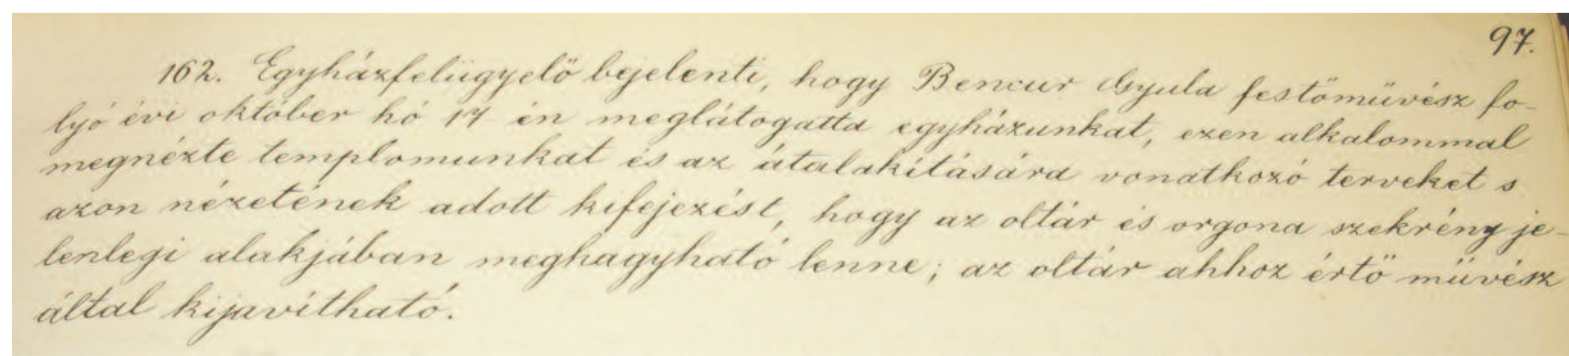 97.
162. Egyházfelügyelő bejelenti, hogy Bencur Gyula festőművész fo-
lyó évi október hó 17 én meglátogatta egyházunkat, ezen alkalommal
megnézte templomunkat és az átalakítására vonatkozó terveket s
azon nézetének adott kifejezést, hogy az oltár és orgona szekrény je-
lenlegi alakjában meghagyható lenne; az oltár ahhoz értő művész
által kijavítható.